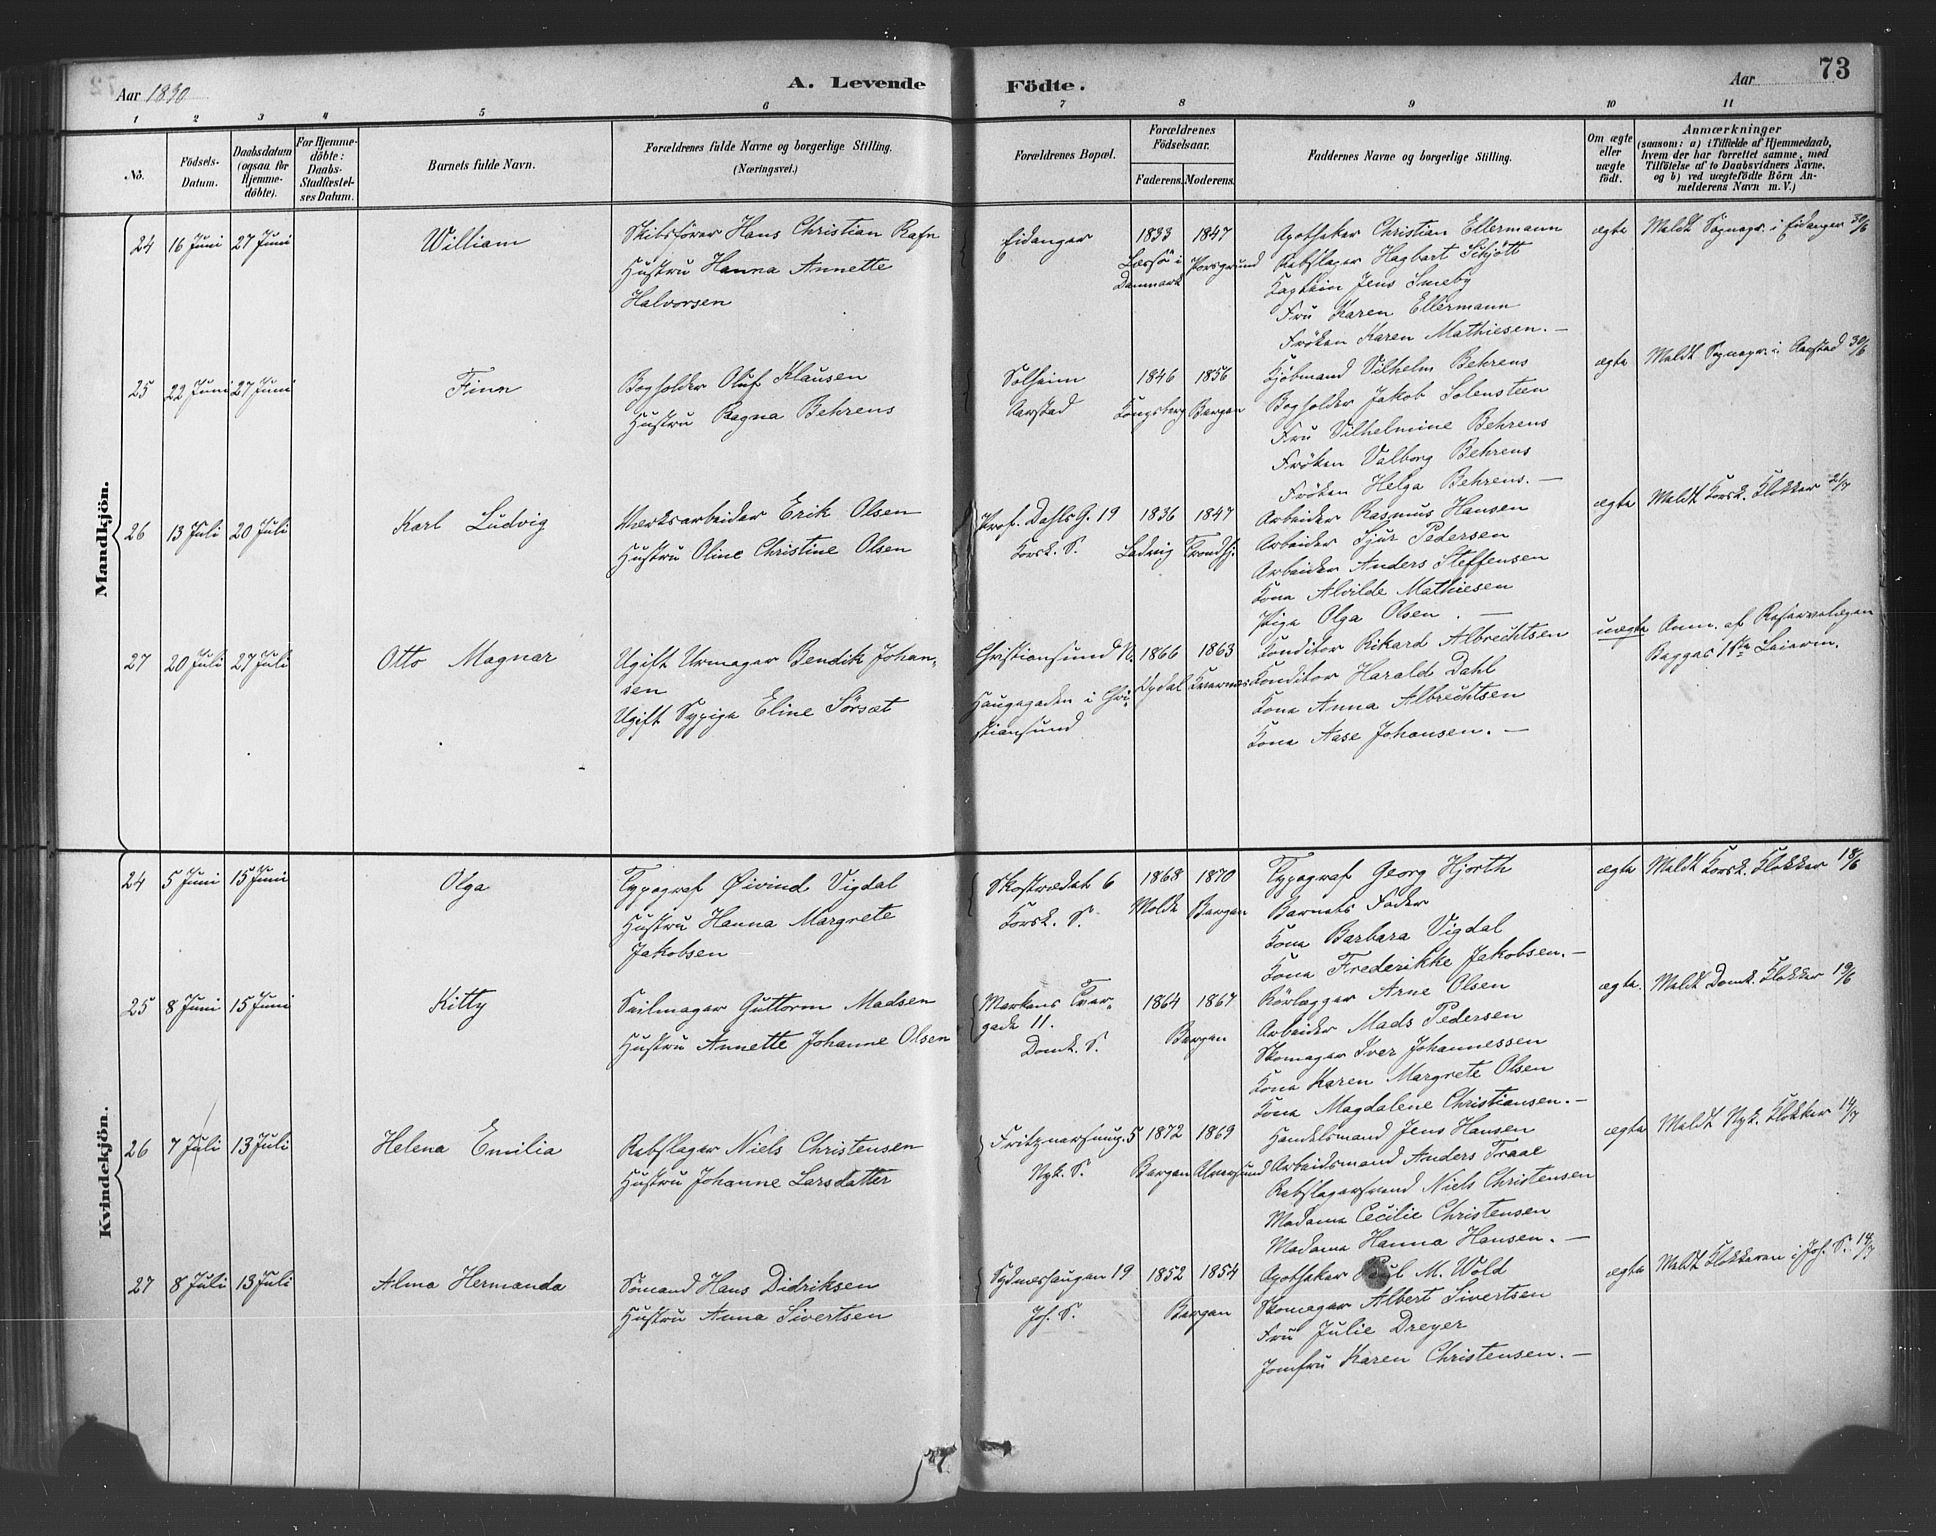 Aar 1890
A. Levende
Födte.
Aar
73
1 2 3 4 5 6 7 8 9 10 11
No.
Födsels-
Datum.
Daabsdatum
(ogsaa for
Hjemme-
döbte).
For Hjemme-
döbte:
Daabs-
Stadfæstel-
ses Datum.
Barnets fulde Navn.
Forældrenes fulde Navne og borgerlige Stilling.
(Næringsvei.)
Forældrenes Bopæl.
Forældrenes
Födselsaar.
Faderens. Moderens.
Faddernes Navne og borgerlige Stilling.
Om ægte
eller
uægte
födt.
Anmærkninger
(saasom: a) i Tilfælde af Hjemmedaab,
hvem der har forrettet samme, med
Tilföielse af to Daabsvidners Navne,
og b) ved uægtefödte Börn An-
melderens Navn m. V.)
Mandkjön.
24 16 Juni 27 Juni
William
Skibsförer Hans Christian Rafn
Hustru Hanna Annette
Halvorsen
Eidanger
1833 1847
Læssö i
Danmark
Porsgrund
Apotheker Christian Ellermann
Rebslager Hagbart Schjött
Kaptein Jens Smeby
Fru Karen Ellermann
Fröken Karen Mathiesen. —
ægte
Meldt Sognepr. i Eidanger 30/6
25 22 Juni 27 Juni
Finn
Bogholder Oluf Klausen
Hustru Ragna Behrens
Solheim
Aarstad
1846 1856
Kongsberg Bergen
Kjöbmand Vilhelm Behrens
Bogholder Jakob Solensteen
Fru Vilhelmine Behrens
Fröken Valborg Behrens
Fröken Helga Behrens. —
ægte
Meldt Sognepr. i Aarstad 30/6
26 13 Juli 20 Juli
Karl Ludvig
Værksarbeider Erik Olsen
Hustru Oline Christine Olsen
Prof. Dahls G. 19
Korsk. S.
1836 1847
Ladvig Trondhj.
Arbeider Rasmus Hansen
Arbeider Sjur Pedersen
Arbeider Anders Steffensen
Kone Alvilde Mathiesen
Pige Olga Olsen. —
ægte
Meldt Korsk. Klokker 21/7
27 20 Juli 27 Juli
Otto Magnar
Ugift Urmager Bendik Johan-
sen
Ugift Sypige Eline Sörsæt
Christiansund N.
Haugegaden i Chri-
stiansund
1866 1863
Opdal Kvernes
Konditor Rikard Albrechtsen
Konditor Harald Dahl
Kone Anna Albrechtsen
Kone Aase Johansen. —
uægte
Anm. af Reservelægen
Bagges 1ste Leierm.
Kvindekjön.
24 5 Juni 15 Juni
Olga
Typograf Øivind Vigdal
Hustru Hanna Margrete
Jakobsen
Skostrædet 6
Korsk. S.
1868 1870
Molde Bergen
Typograf Georg Hjorth
Barnets Fader
Kone Barbara Vigdal
Kone Frederikke Jakobsen. —
ægte
Meldt Korsk. Klokker 18/6
25 8 Juni 15 Juni
Kitty
Seilmager Guttorm Madsen
Hustru Annette Johanne Olsen
Markens Tver-
gade 11.
Domk. S.
1864 1867
Bergen
Rörlægger Arne Olsen
Arbeider Mads Pedersen
Skomager Iver Johannessen
Kone Karen Margrete Olsen
Kone Magdalene Christiansen. —
ægte.
Meldt Domk. Klokker 19/6
26 7 Juli 13 Juli
Helena Emilia
Rebslager Niels Christensen
Hustru Johanne Larsdatter
Fritznersmug. 5
Nyk. S.
1872 1869
Bergen Almesund
Handelsmand Jens Hansen
Arbeidsmand Anders Traae
Rebslagersvend Niels Christensen
Madame Cecilie Christensen
Madame Hanna Hansen. —
ægte
Meldt Nyk. Klokker 14/7
27 8 Juli 13 Juli
Alma Hermanda
Sömand Hans Didriksen
Hustru Anna Sivertsen
Sydneshaugen 19
Joh. S.
1852 1854
Bergen
Apotheker Paul M. Wold
Skomager Albert Sivertsen
Fru Julie Dreyer
Jomfru Karen Christensen. —
ægte
Meldt Klokkeren i Joh. S. 14/7